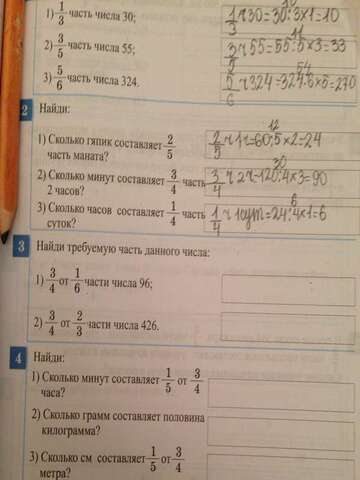 1) 1/3 часть числа 30;
1/3 ч 30=30:3×1=10
2) 3/5 часть числа 55;
11
3/5 ч 55=55:5×3=33
3) 5/6 часть числа 324.
54
5/6 ч 324=324:6×5=270
2 Найди:
1) Сколько гяпик составляет 2/5
часть маната?
12
2/5 ч 1ч=60:5×2=24
2) Сколько минут составляет 3/4 часть
2 часов?
30
3/4 ч 2ч=120:4×3=90
3) Сколько часов составляет 1/4 часть
суток?
6
1/4 ч 1сут=24:4×1=6
3 Найди требуемую часть данного числа:
1) 3/4 от 1/6 части числа 96;
2) 3/4 от 2/3 части числа 426.
4 Найди:
1) Сколько минут составляет 1/5 от 3/4
часа?
2) Сколько грамм составляет половина
килограмма?
3) Сколько см составляет 1/5 от 3/4
метра?